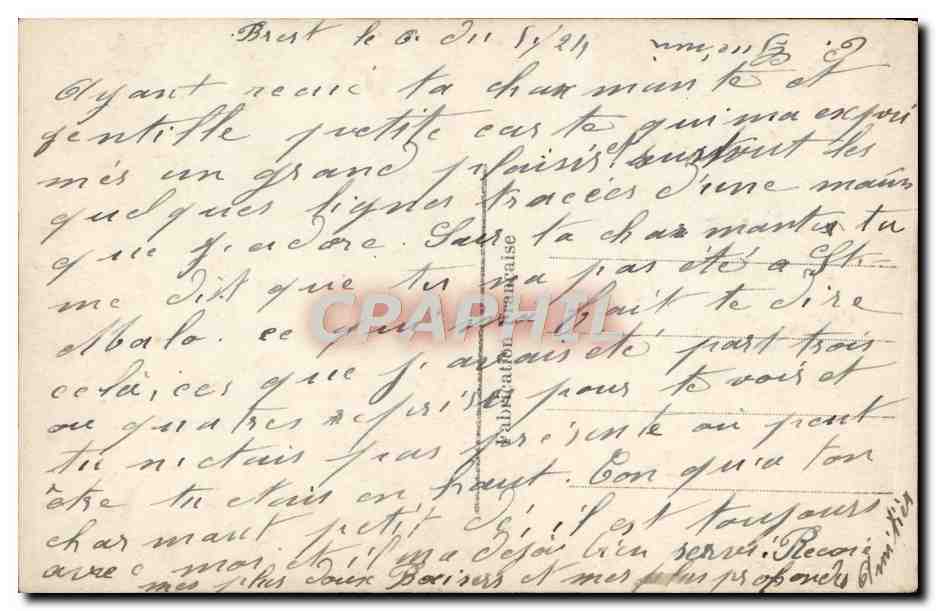 Brest le 6. du 5./24
Ayant recic ta charmante et
gentille petite carte qui ma expri
més un grand plaisir surtout les
quelques lignes tracées d'une mains
que j'adore. Sur ta charmante tu
me dit que tu na pas été a St.
Malo. ce qui ma fait te dire
celà, ces que j'avais été part trois
ou quatres reprise pour te voir et
tu n'etais pas présente ou peut
être tu etais en haut. Ton qu'a ton
charmant petit dé, il est toujours
avec moi, et il ma dèjà bien servi. Recoi
mes plus doux Baisers et mes plus profondes
Amitiés
Fabrication Française
CPAPHIL